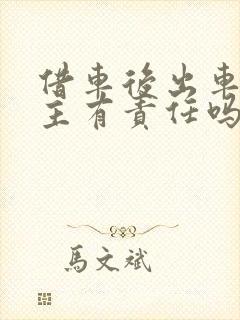 借車後出車
主有責任嗎
馬文斌